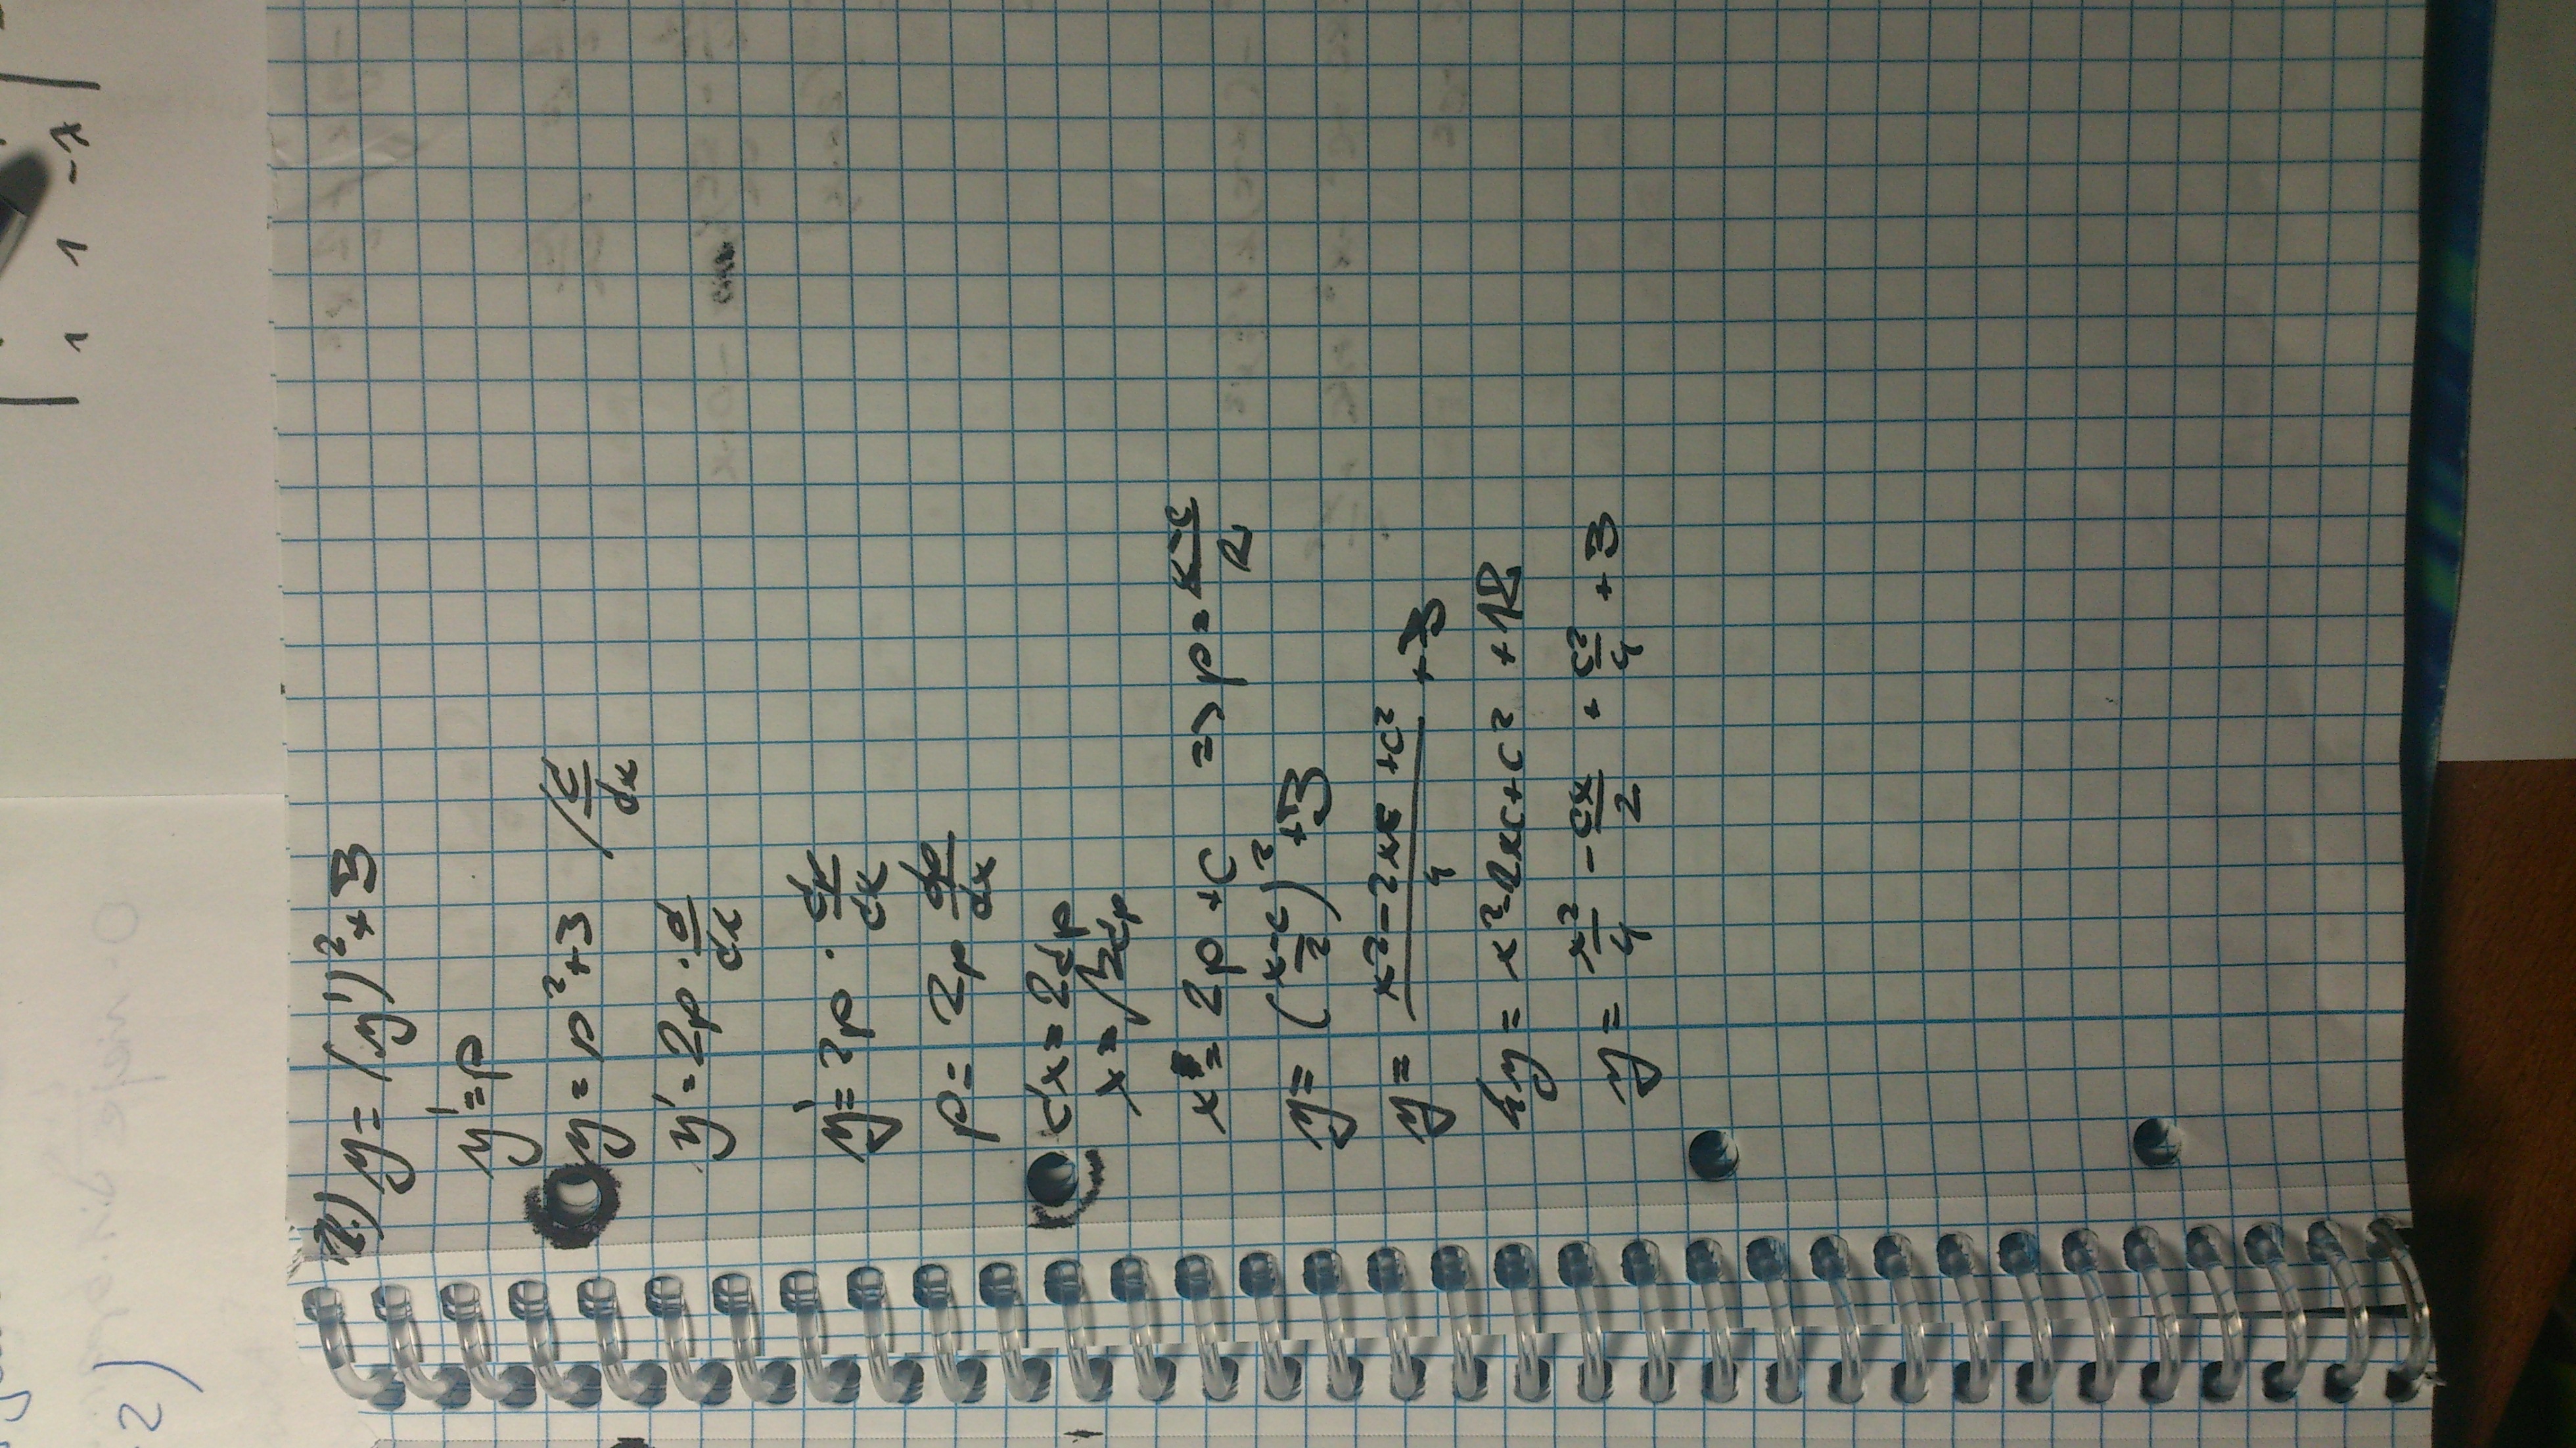 1 1 -λ
2)
2.) y = (y')² + 3
y' = p
y = p² + 3 / d/dx
y' = 2p · d/dx
y' = 2p · dp/dx
p = 2p dp/dx
dx = 2dp
x = ∫2dp
x = 2p + c => p = x-c/2
y = (x-c/2)² + 3
y = x² - 2xc + c²/4 + 3
4y = x² - 2xc + c² + 12
y = x²/4 - cx/2 + c²/4 + 3